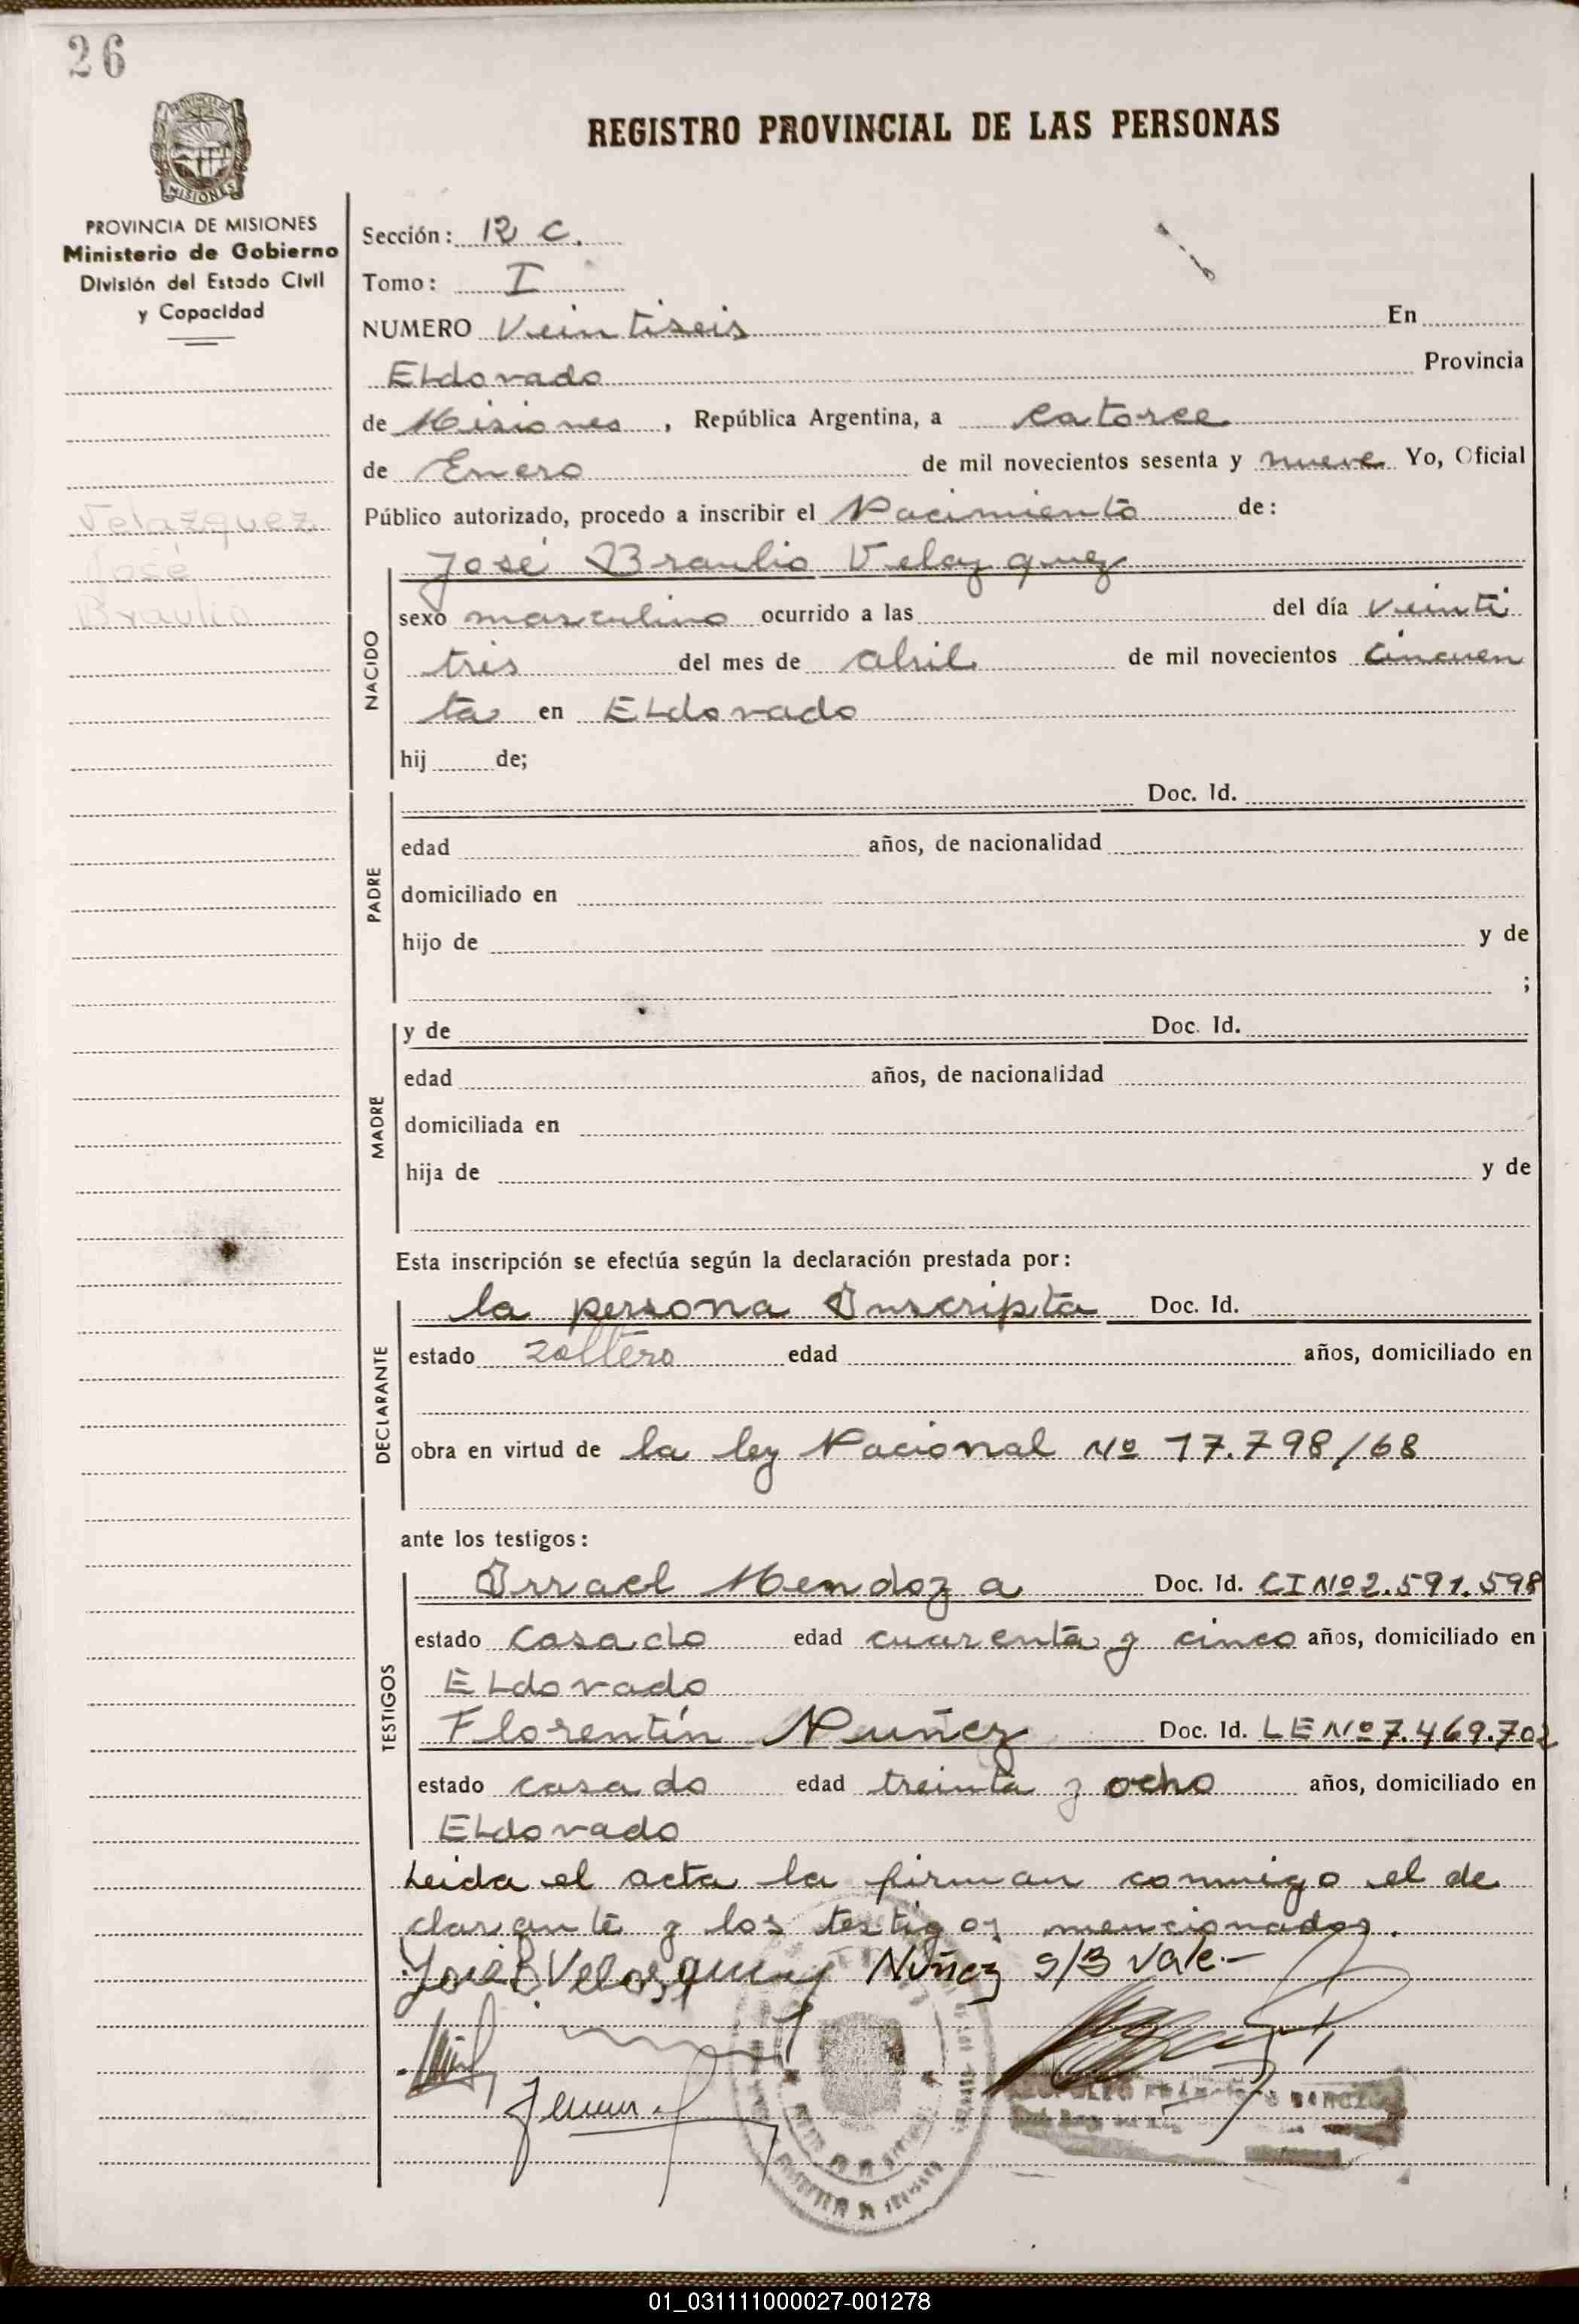 26
REGISTRO PROVINCIAL DE LAS PERSONAS
MISIONES
PROVINCIA DE MISIONES
Ministerio de Gobierno
División del Estado Civil
y Capacidad
Velazquez
José
Braulio
Sección: 12 C.
Tomo: I
NUMERO Veintiseis En
ELdorado Provincia
de Misiones, República Argentina, a catorce
de Enero de mil novecientos sesenta y nueve Yo, Oficial
Público autorizado, procedo a inscribir el Nacimiento de:
José Braulio Velazquez
NACIDO
sexo masculino ocurrido a las del día veinti
tres del mes de abril de mil novecientos cincuen
ta en ELdorado
hij de;
PADRE
Doc. Id.
edad años, de nacionalidad
domiciliado en
hijo de y de
;
MADRE
y de Doc. Id.
edad años, de nacionalidad
domiciliada en
hija de y de
Esta inscripción se efectúa según la declaración prestada por:
DECLARANTE
la persona Inscripta Doc. Id.
estado zoltero edad años, domiciliado en
obra en virtud de la ley Nacional Nº 17.798/68
ante los testigos:
TESTIGOS
Irrael Mendoza Doc. Id. CI Nº 2.591.598
estado casado edad cuarenta y cinco años, domiciliado en
ELdorado
Florentín Nuñez Doc. Id. LE Nº 7.469.702
estado casado edad treinta y ocho años, domiciliado en
ELdorado
Leida el acta la firman conmigo el de
clarante y los testigos mencionados.
José B Velasquez Nuñez S/B vale.-
01_031111000027-001278